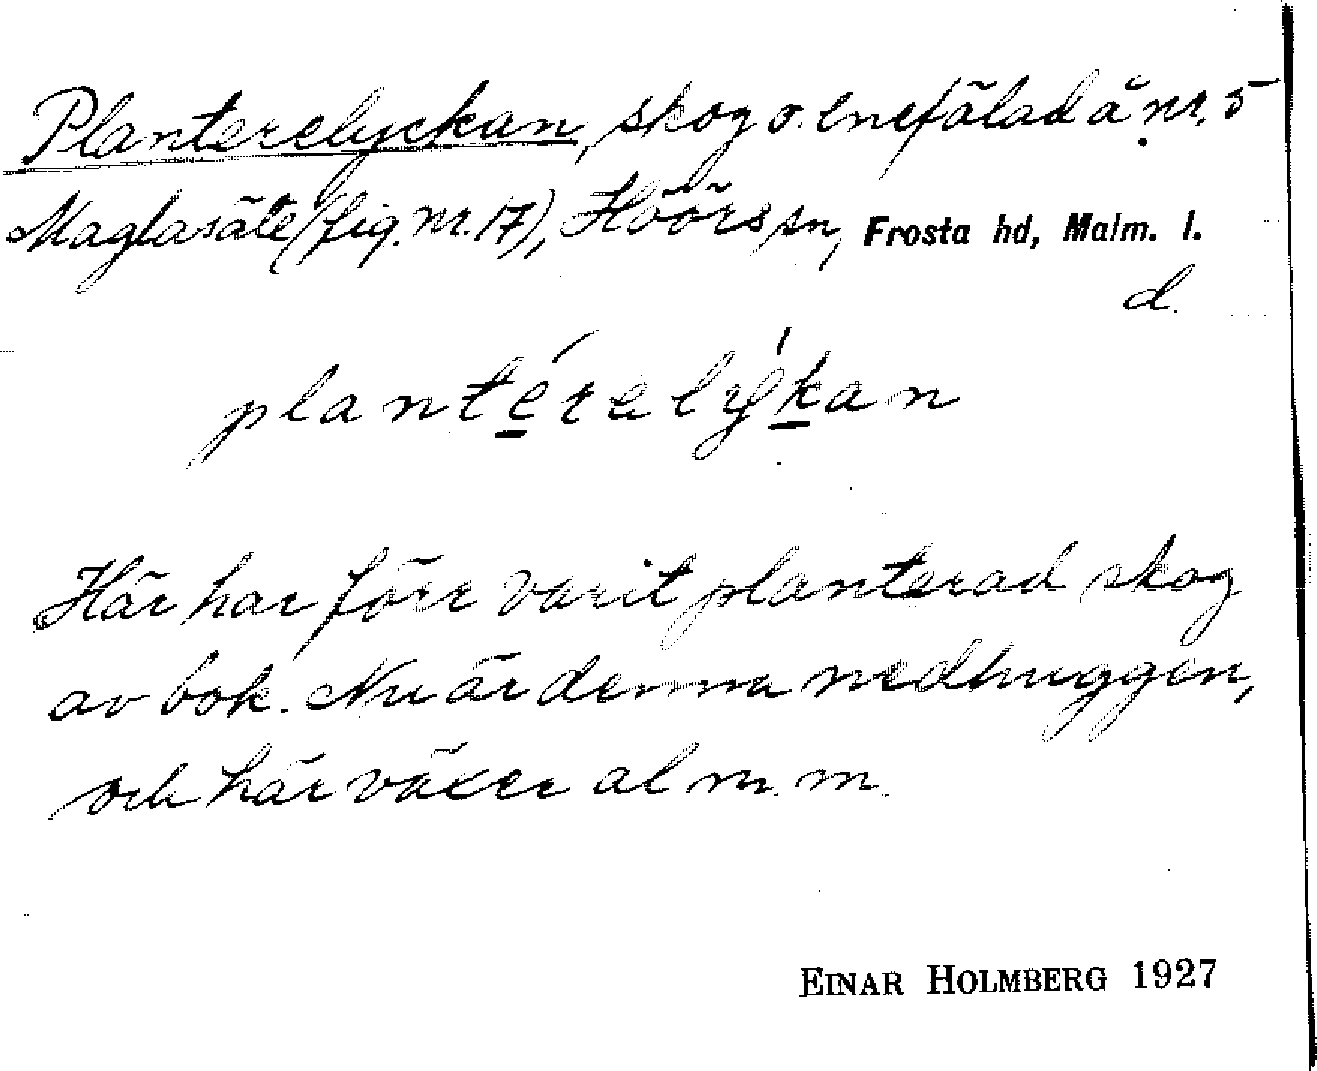 Planterelyckan, skog o. enefälad å nr. 5
Maglasäte (fig. nr. 17), Höörs sn, Frosta hd, Malm. l.
d.
plantérelýkan
Här har förr varit planterad skog
av bok. Nu är denna nedhuggen,
och här växer al m. m.
EINAR HOLMBERG 1927